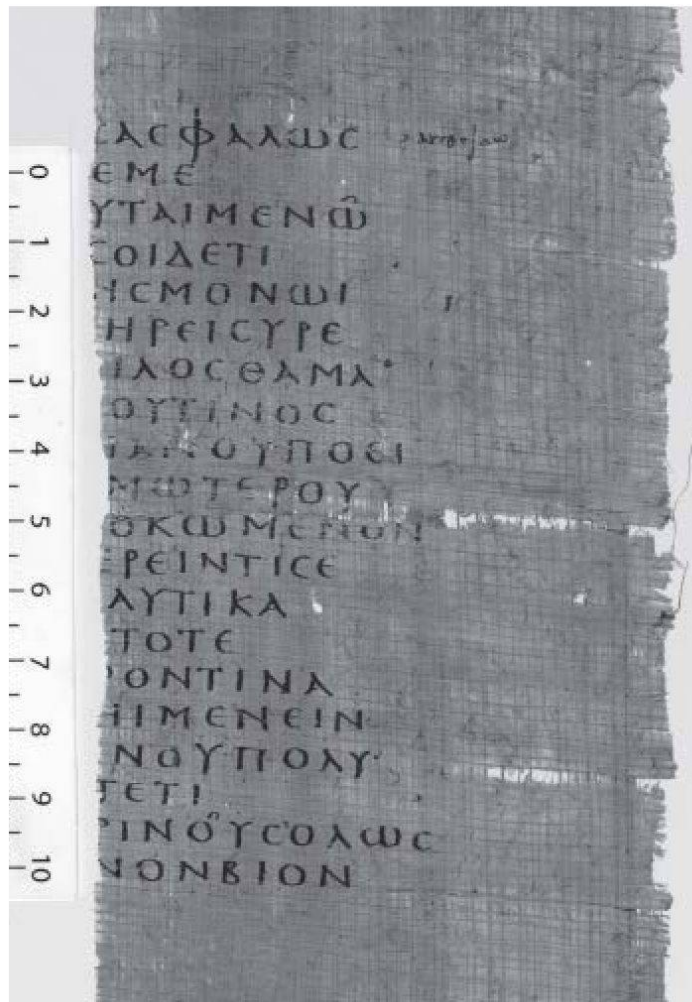 ΑϹΦΑΛΩϹ
ΕΜΕ
ΥΤΑΙΜΕΝΩ͂
ϹΟΙΔΕΤΙ
ΗϹΜΟΝΩΙ
ΗΡΕΙϹΥΡΕ
ΙΛΟϹΘΑΜΑ
ΟΥΤΙΝΟϹ
ΑΝΟΥΠΟΕΙ
ΜΩΤΕΡΟΥ
ΟΚΩΜΕΝΟΝ
ΡΕΙΝΤΙϹΕ
ΑΥΤΙΚΑ
ΤΟΤΕ
ΟΝΤΙΝΑ
ΗΙΜΕΝΕΙΝ
ΝΟΥΠΟΛΥ·
ΤΕΤΙ
ΙΝΟΥϹΟΛΩϹ
ΝΟΝΒΙΟΝ
0
1
2
3
4
5
6
7
8
9
10